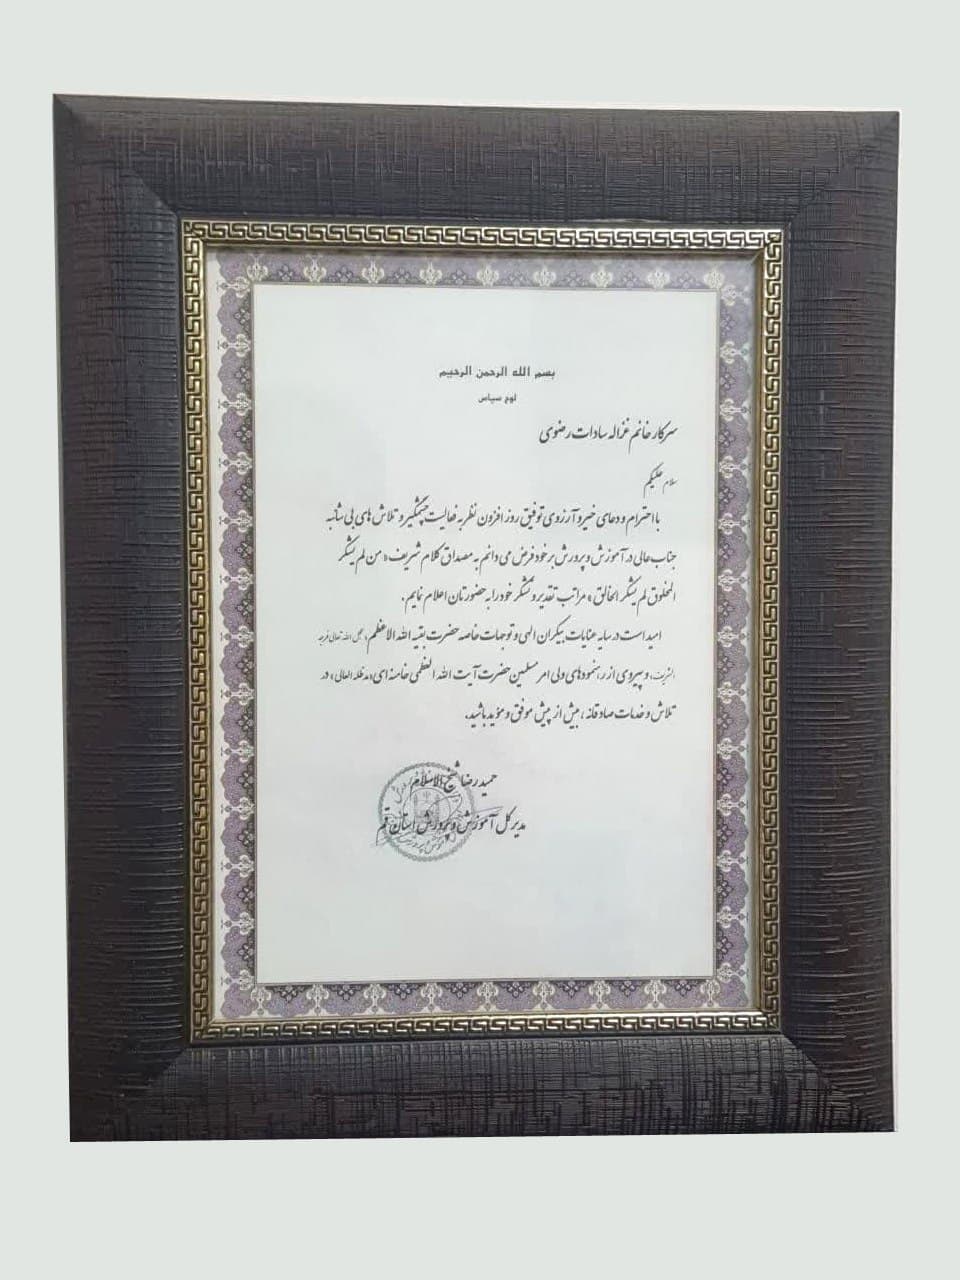 بسم الله الرحمن الرحیم
لوح سپاس
سرکار خانم غزاله سادات رضوی
سلام علیکم
با احترام و دعای خیر و آرزوی توفیق روز افزون نظر به فعالیت چشمگیر و تلاش های بی شائبه
جناب عالی در آموزش و پرورش بر خود فرض می دانم به مصداق کلام شریف « من لم یشکر
المخلوق لم یشکر الخالق » مراتب تقدیر و تشکر خود را به حضورتان اعلام نمایم.
امید است در سایه عنایات بیکران الهی و توجهات خاصه حضرت بقیه الله الاعظم «عجل الله تعالی فرجه
الشریف» و پیروی از رهنمودهای ولی امر مسلمین حضرت آیت الله العظمی خامنه ای «مدظله العالی» در
تلاش و خدمات صادقانه ، بیش از پیش موفق و موید باشید.
حمید رضا شیخ الاسلام
مدیر کل آموزش و پرورش استان قم